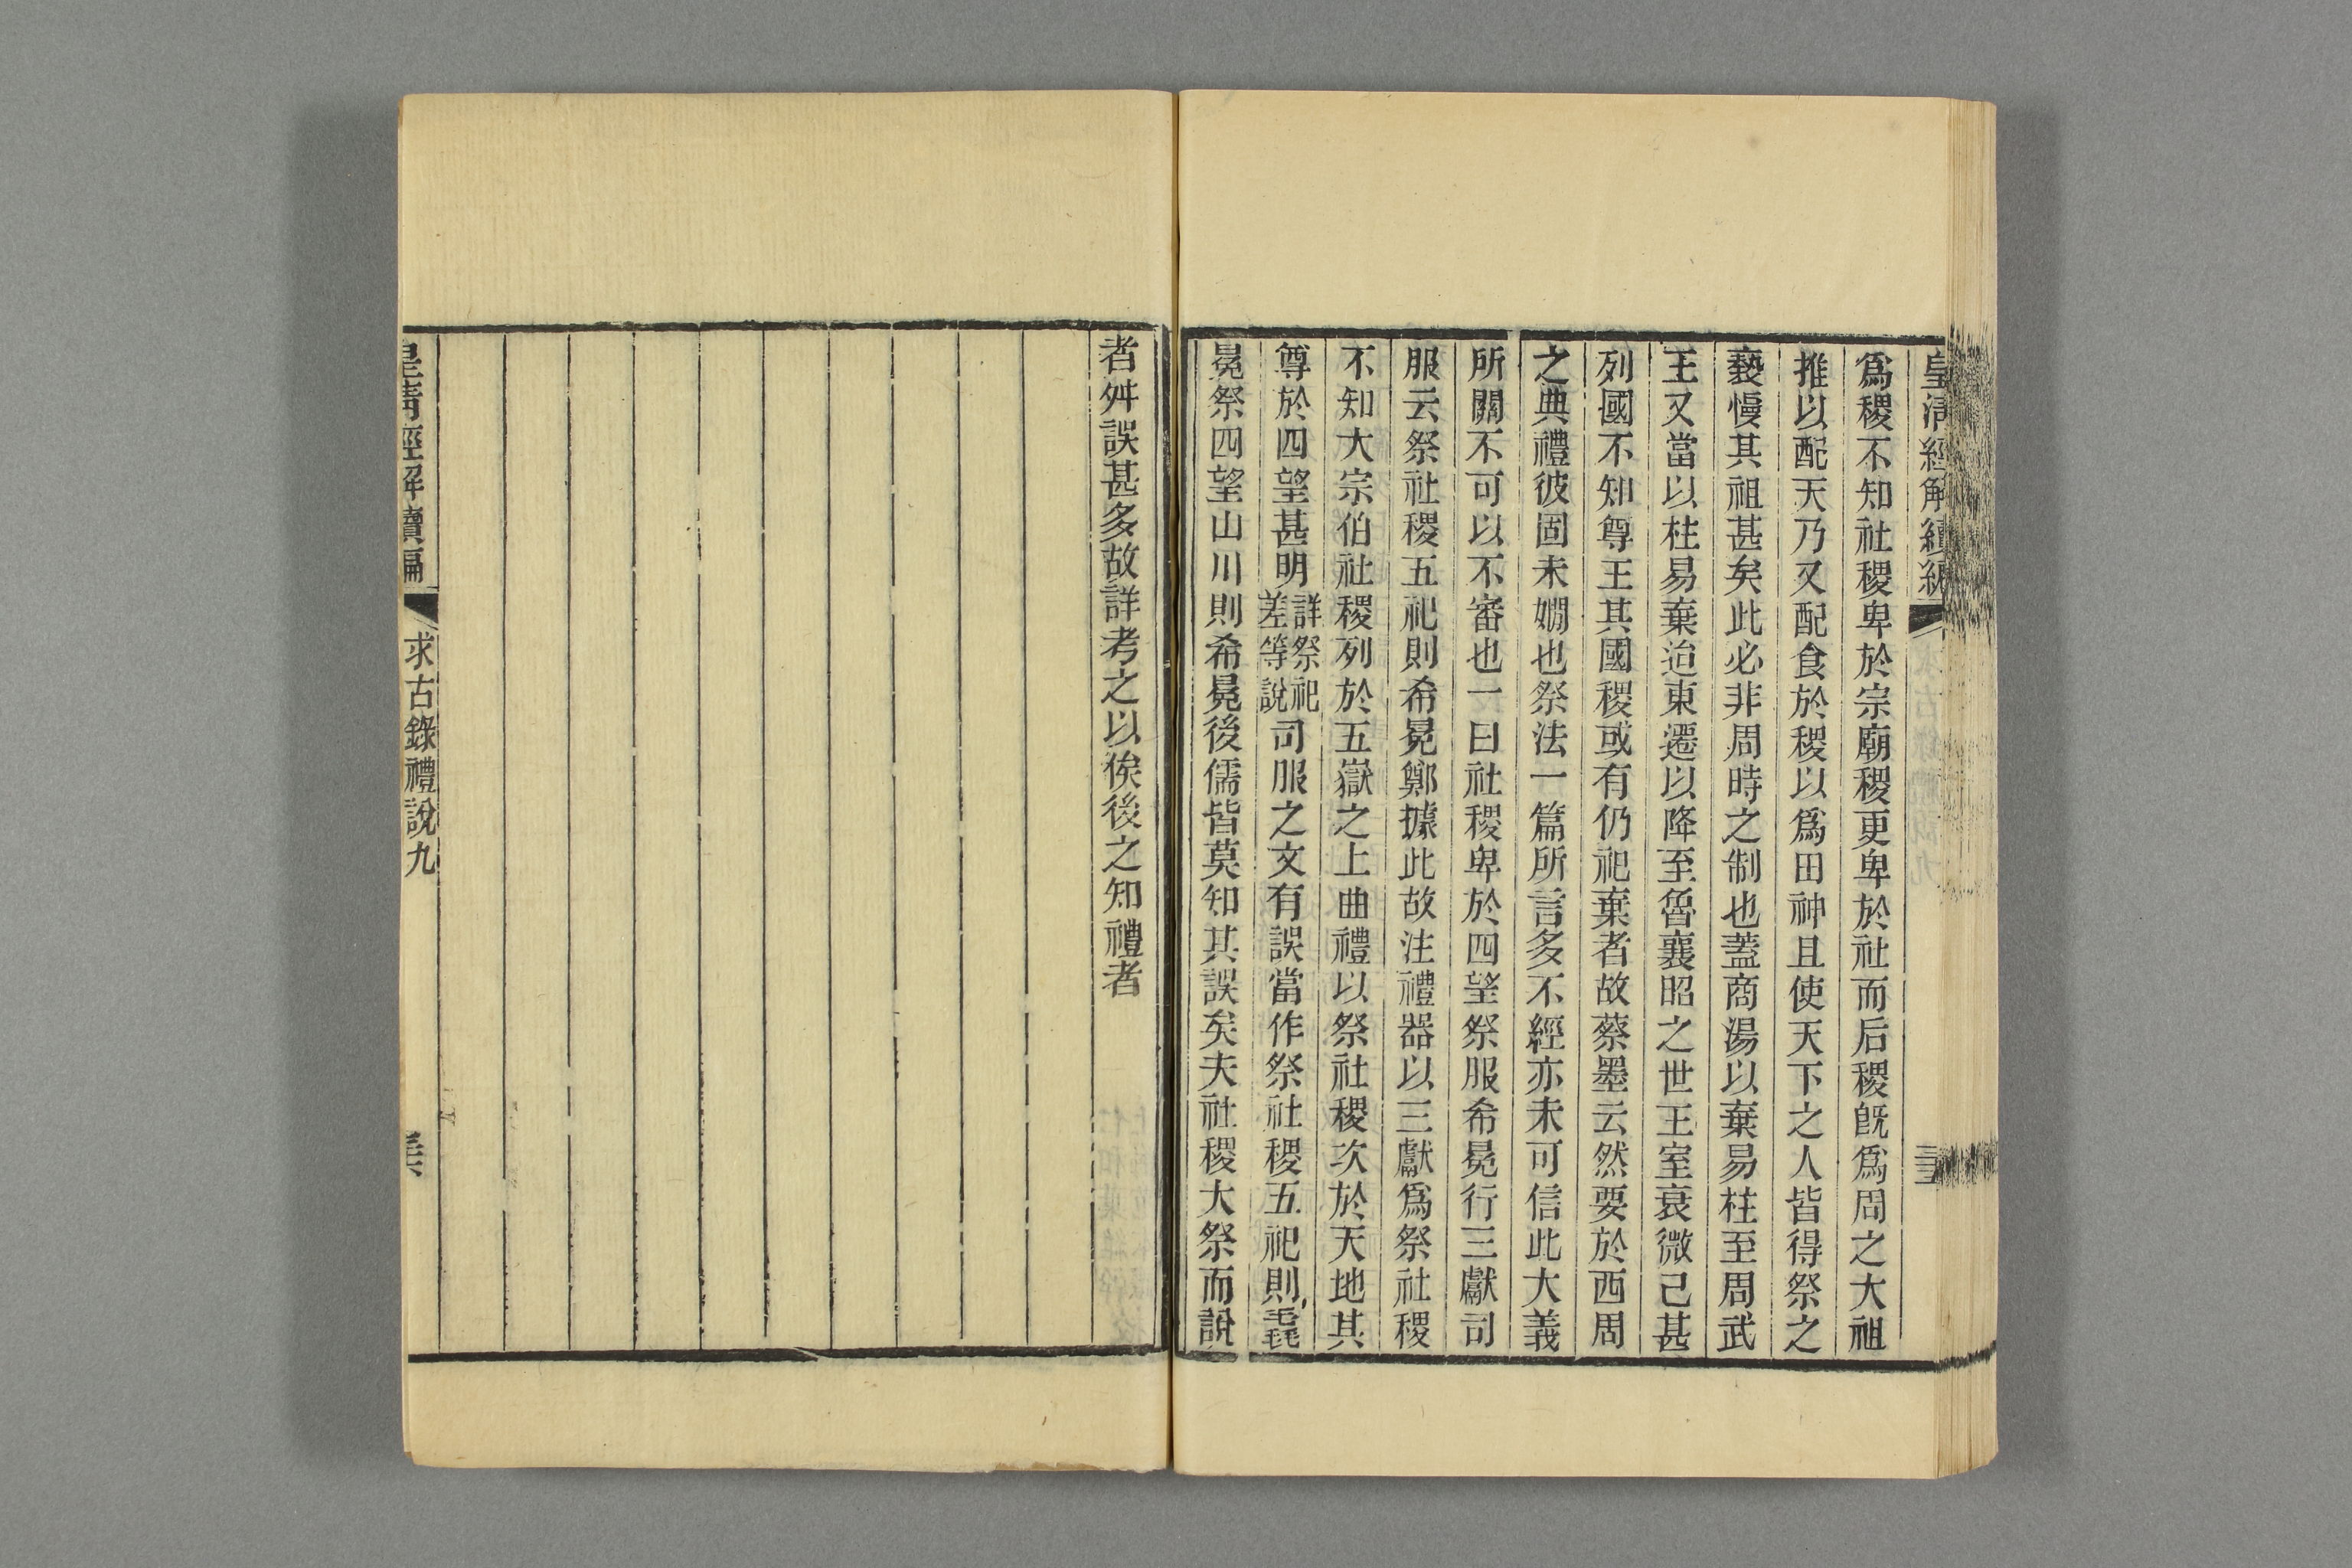 皇清經解續編
爲稷不知社稷卑於宗廟稷更卑於社而后稷既爲周之大祖
推以配天乃又配食於稷以爲田神且使天下之人皆得祭之
褻慢其祖甚矣此必非周時之制也蓋商湯以棄易柱至周武
王又當以柱易棄迨東遷以降至魯襄昭之世王室衰微己甚
列國不知尊王其國稷或有仍祀棄者故蔡墨云然要於西周
之典禮彼固未嫺也祭法一篇所言多不經亦未可信此大義
所關不可以不審也一曰社稷卑於四望祭服希冕行三獻司
服云祭社稷五祀則希冕鄭據此故注禮器以三獻爲祭社稷
不知大宗伯社稷列於五嶽之上曲禮以祭社稷次於天地其
尊於四望甚明詳祭祀差等說司服之文有誤當作祭社稷五祀則毳
冕祭四望山川則希冕後儒皆莫知其誤矣夫社稷大祭而說
者舛誤甚多故詳考之以俟後之知禮者
皇清經解續編
求古錄禮說九